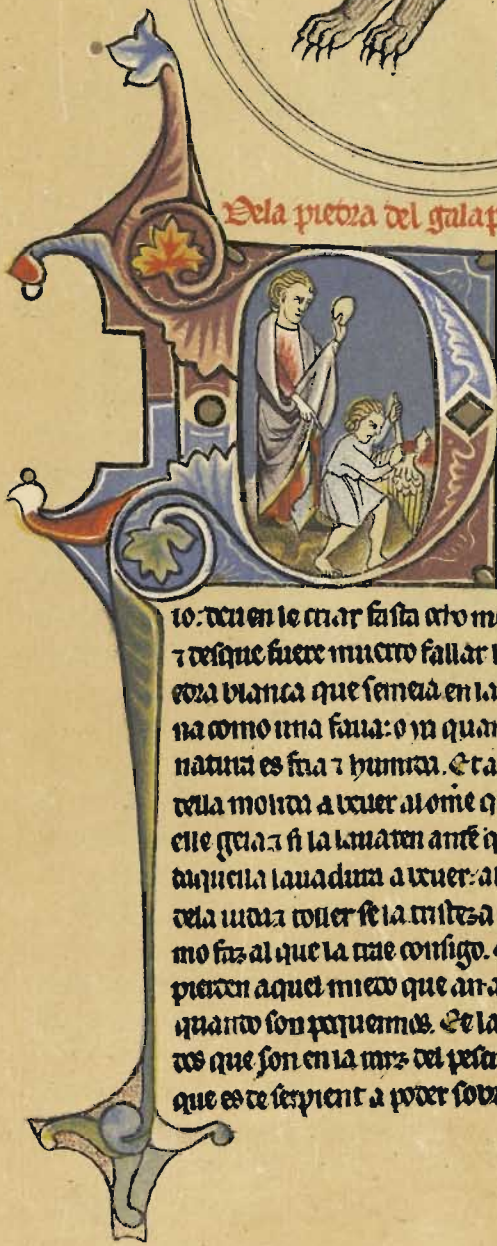 Dela piedra del galap
io: deuen le criar fasta ocho m
⁊ desque fuere muerto fallar l
edra blanca que semeia en la
na como una faua: o in quar
natura es fria ⁊ humida. Et a
della molida a beuer al ome q
elle gela ⁊ si la lauaren ante q
daquella lauadura a beuer: al
dela uida ⁊ toller se la tristeza
mo faz al que la trae consigo.
pierden aquel miedo que an a
quando son pequennos. Et la
dos que son en la
que es de serpient a poder sobr